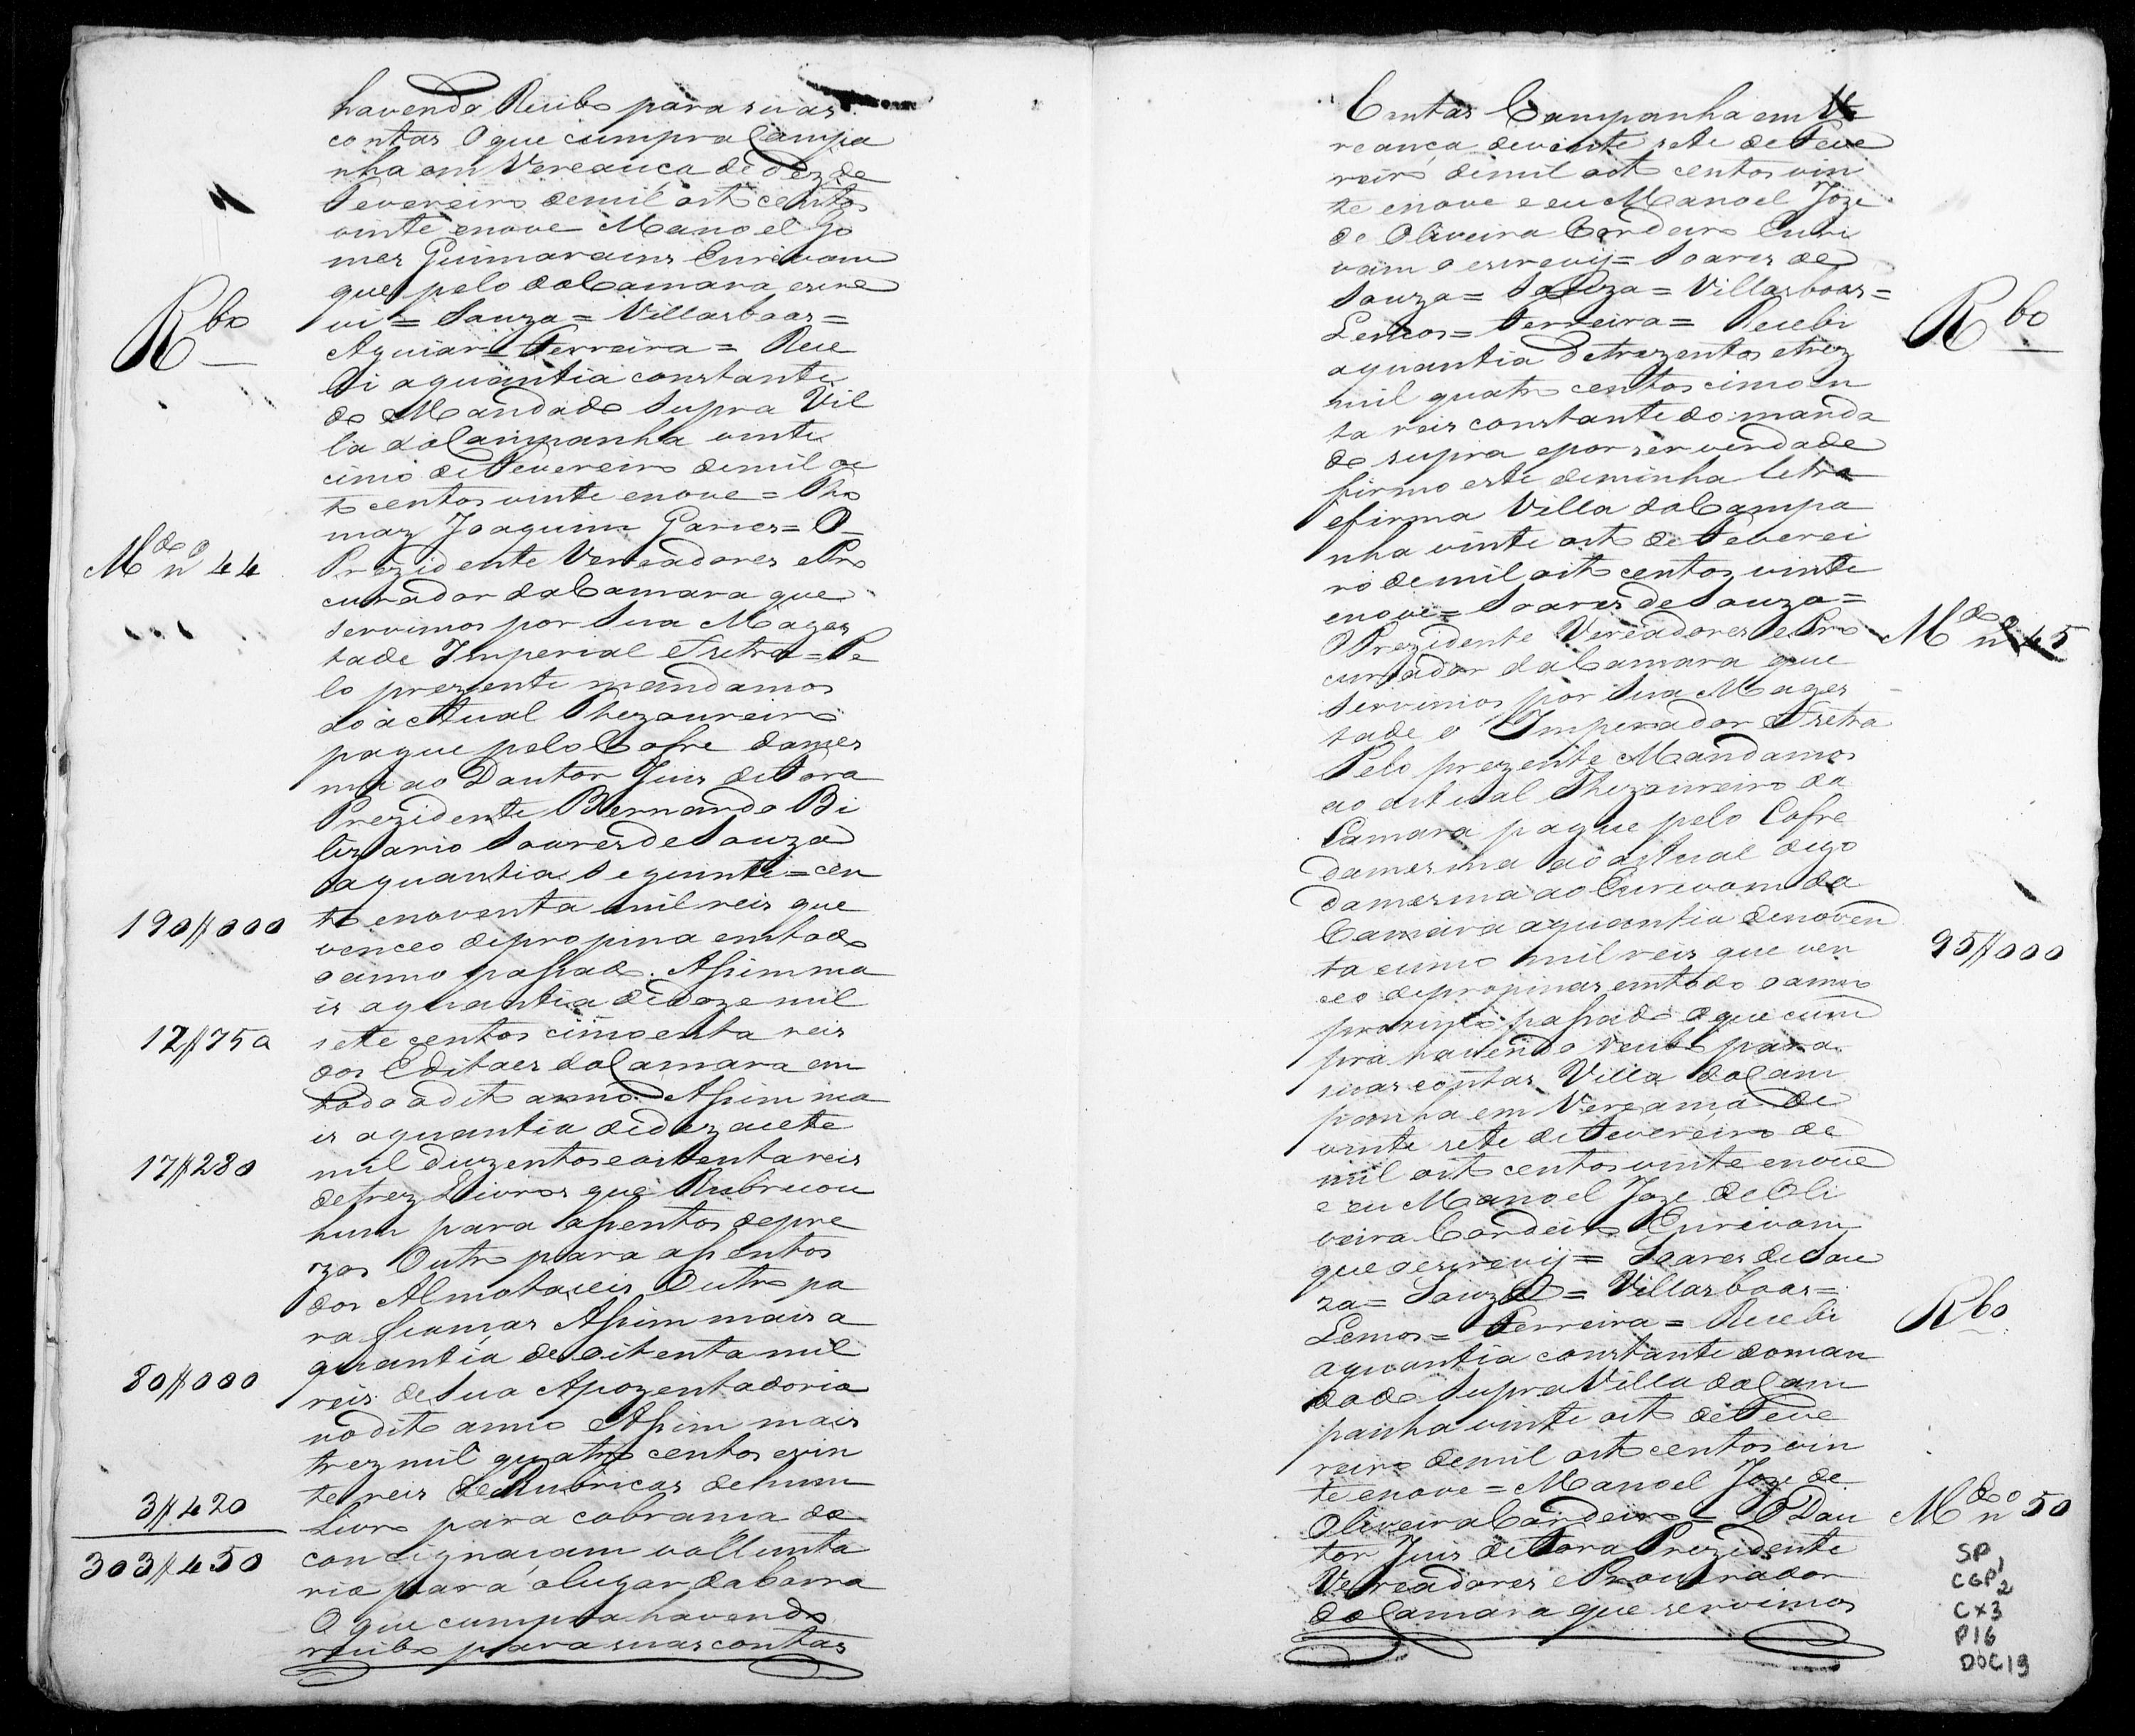 havendo Recibo para suas
contas O que cumpra Campa
nha em Vereanca de dez de
Fevereiro de mil oito centos
vinte enove Manoel Go
mes Guimarains Escrivam
que pelo da Camara escre
vi = Souza = Villasboas =
Rbo
Aguiar = Ferreira = Rece
bi aquantia constante
do Mandado supra Vil
la da Campanha vinte
cinco de Fevereiro de mil oi
to centos vinte enove = Tho
maz Joaquim Garces = O
Mdo no 44
Prezidente Vereadores e Pro
curador da Camara que
servimos por Sua Mages
tade Imperial etsetra = Pe
lo prezente mandamos
ao actual Thezoureiro
pague pelo Cofre da mes
ma ao Doutor Juis de Fora
Prezidente Bernardo Be
lizario Soares de Souza
aquantia seguinte = cen
190$000
to enoventa mil reis que
venceo de propina em todo
o anno passado. Assim ma
is aquantia de doze mil
12$750
sete centos cincoenta reis
dos Editaes da Camara em
todo o dito anno Assim ma
is aquantia de dezacete
17$280
mil duzentos eoitenta reis
de trez Livros que Rubricou
hum para assentos de pre
zos Outro para assentos
dos Almotaceis Outro pa
ra fiamças Assim mais a
80$000
quantia de oitenta mil
reis de sua Apozentadoria
no dito anno Assim mais
trez mil quatro centos evin
3$420
te reis de Rubricas de hum
Livro para cobrança da
303$450
concignaçam vollunta
ria para o lugar da barra
O que cumpra havendo
recibo para suas contas
Contas Campanha em Ve
reança de vinte sete de Feve
reiro de mil oito centos vin
te enove e eu Manoel Joze
de Oliveira Cordeiro Escri
vam o escrevy = Soares de
Souza = Souza = Villasboas =
Rbo
Lemos = Ferreira = Recebi
aquantia de trezentos etrez
mil quatro centos cincoen
ta reis constante do manda
do supra epor ser verdade
firmo este de minha letra
efirma Villa da Campa
nha vinte oito de Feverei
ro de mil oito centos vinte
enove = Soares de Souza =
Mdo no 45
O Prezidente Vereadores e Pro
curador da Camara que
servimos por Sua Mages
tade o Imperador etsetra
Pelo prezente Mandamos
ao actual Thezoureiro da
Camara pague pelo Cofre
da mesma ao actual digo
da mesma ao Escrivam da
Camara aquantia de noven
95$000
ta ecinco mil reis que ven
ceo de propinas em todo o anno
proximo passado o que cum
pra havendo recibo para
suas contas Villa da Cam
panha em Vereança de
vinte sete de Fevereiro de
mil oito centos vinte enove
e eu Manoel Joze de Oli
veira Cordeiro Escrivam
que o escrevy = Soares de Sou
za = Souza = Villasboas =
Rbo
Lemos = Ferreira = Recebi
aquantia constante do man
dado Supra Villa da Cam
panha vinte oito de Feve
reiro de mil oito centos vin
te enove = Manoel Joze de
Mdo no 50
Oliveira Cordeiro = O Dou
tor Juis de Fora Prezidente
Vereadores e Procurador
da Camara que servimos
SP
CGP1
2
CX3
P16
DOC19